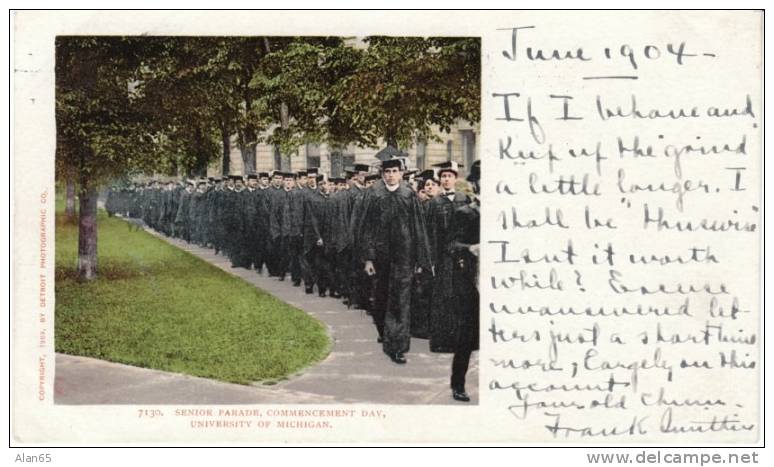 June 1904 -
If I behave and
Keep up the "grind"
a little longer. I
shall be "thuswise"
Isn't it worth
while? Excuse
unanswered let-
ters just a short time
more, Largely on this
account
Your old chum -
Frank
COPYRIGHT, 1903, BY DETROIT PHOTOGRAPHIC CO.
7130. SENIOR PARADE, COMMENCEMENT DAY,
UNIVERSITY OF MICHIGAN.
www.delcampe.net